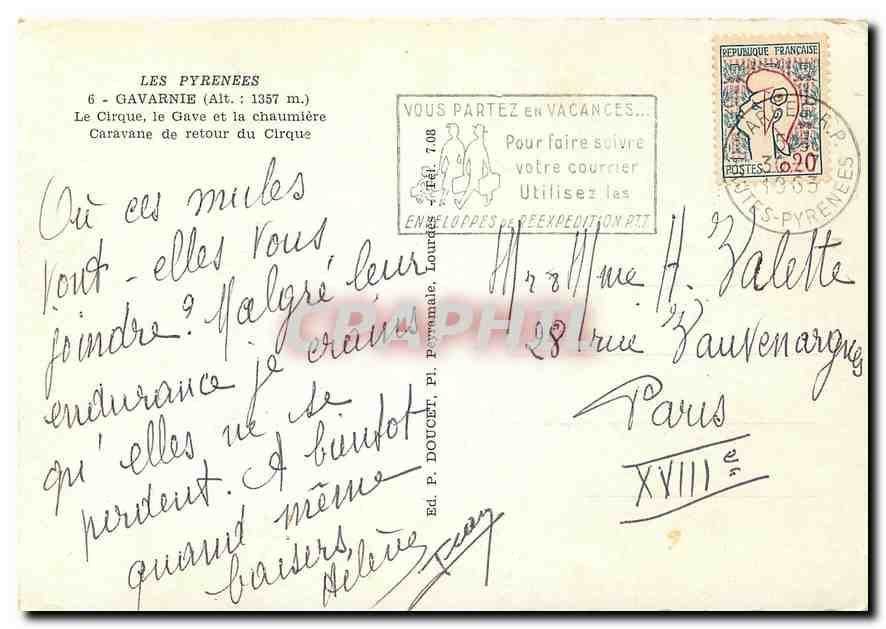 LES PYRENEES
6 - GAVARNIE (Alt. : 1357 m.)
Le Cirque, le Gave et la chaumière
Caravane de retour du Cirque
Où ces mules
vont-elles vous
joindre? Malgré leur
endurance je crains
qu'elles ne se
perdent. A bientot
quand même
baisers,
Hélène
Ed. P. DOUCET, Pl. Peyramale, Lourdes - Tél. 7.08
VOUS PARTEZ EN VACANCES...
Pour faire suivre
votre courrier
Utilisez les
ENVELOPPES DE REEXPEDITION P.T.T
REPUBLIQUE FRANÇAISE
POSTES 0,20
1963
HTES-PYRENEES
Mr & Mme H. Valette
28 rue Vauvenargues
Paris
XVIIIe
CRAPHTL